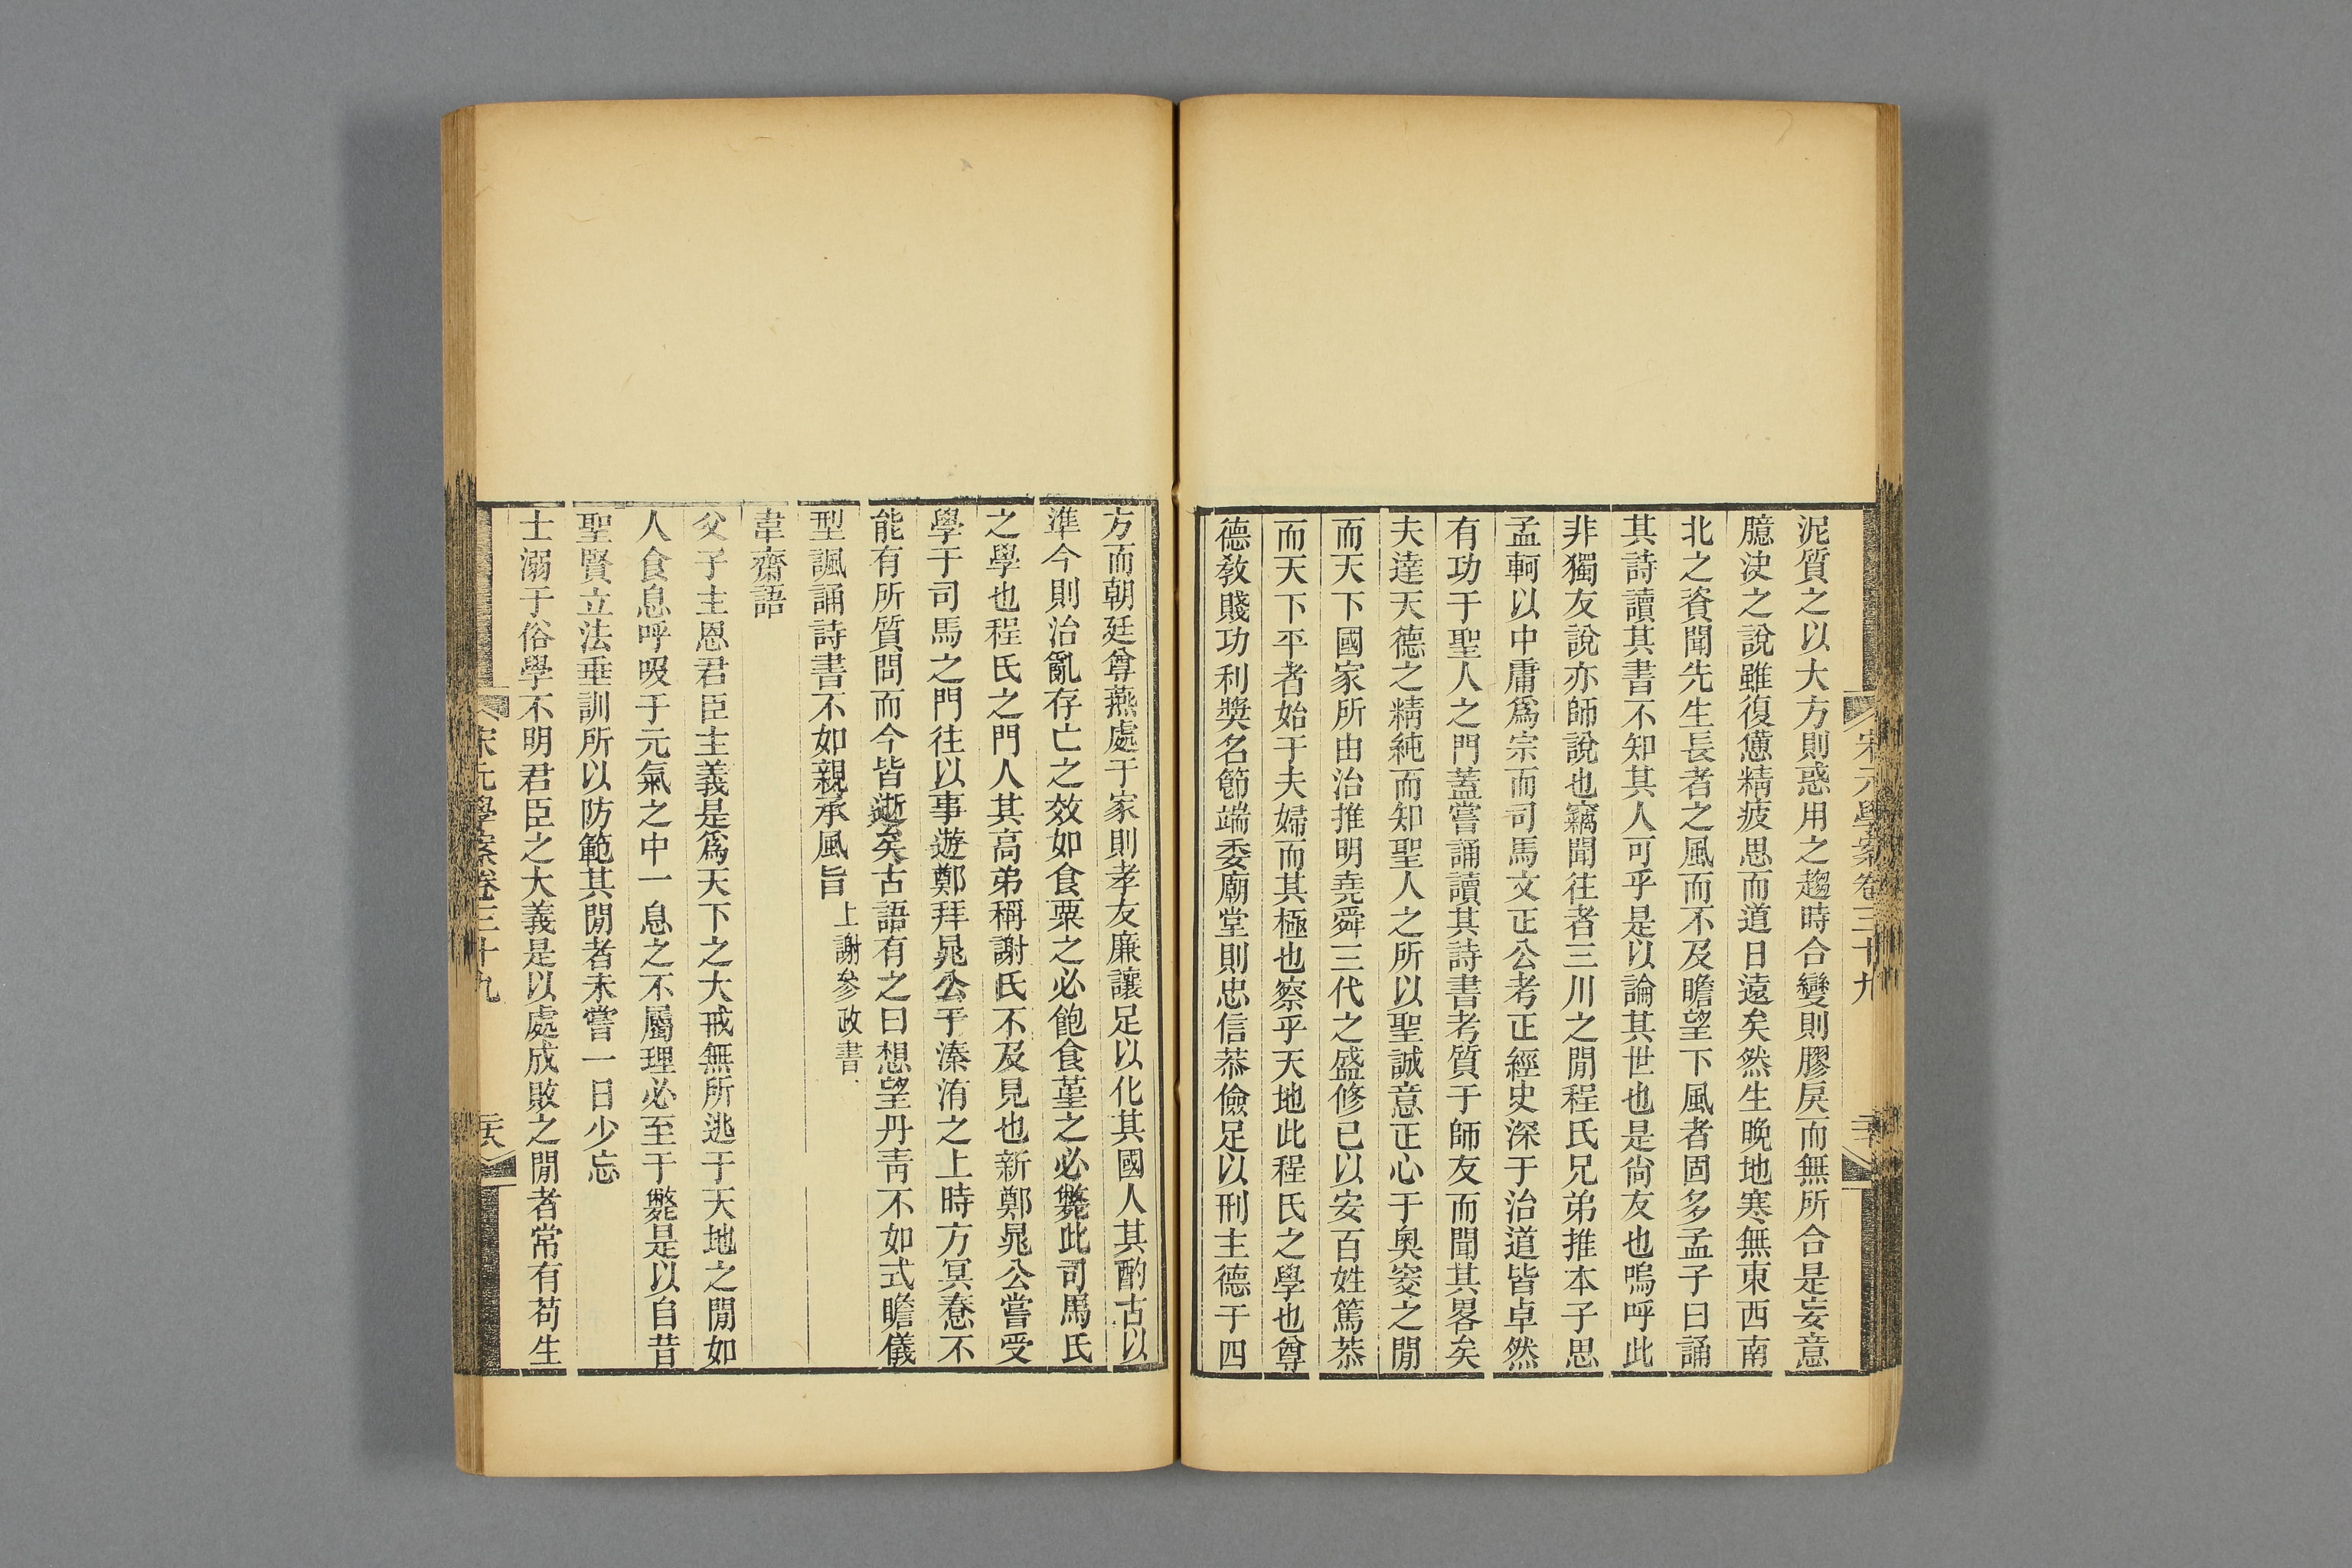 宋元學案卷三十九
泥質之以大方則惑用之趨時合變則膠戾而無所合是妄意
臆決之說雖復憊精疲思而道日遠矣然生晚地寒無東西南
北之資聞先生長者之風而不及瞻望下風者固多孟子曰誦
其詩讀其書不知其人可乎是以論其世也是尙友也嗚呼此
非獨友說亦師說也竊聞往者三川之閒程氏兄弟推本子思
孟軻以中庸爲宗而司馬文正公考正經史深于治道皆卓然
有功于聖人之門蓋嘗誦讀其詩書考質于師友而聞其畧矣
夫達天德之精純而知聖人之所以聖誠意正心于奧窔之閒
而天下國家所由治推明堯舜三代之盛修已以安百姓篤恭
而天下平者始于夫婦而其極也察乎天地此程氏之學也尊
德敎賤功利獎名節端委廟堂則忠信恭儉足以刑主德于四
方而朝廷尊燕處于家則孝友廉讓足以化其國人其酌古以
準今則治亂存亡之效如食粟之必飽食堇之必斃此司馬氏
之學也程氏之門人其高弟稱謝氏不及見也新鄭晁公嘗受
學于司馬之門往以事遊鄭拜晁公于溱洧之上時方冥惷不
能有所質問而今皆逝矣古語有之曰想望丹靑不如式瞻儀
型諷誦詩書不如親承風旨上謝參政書
韋齋語
父子主恩君臣主義是爲天下之大戒無所逃于天地之閒如
人食息呼吸于元氣之中一息之不屬理必至于斃是以自昔
聖賢立法垂訓所以防範其閒者未嘗一日少忘
士溺于俗學不明君臣之大義是以處成敗之閒者常有苟生
宋元學案卷三十九